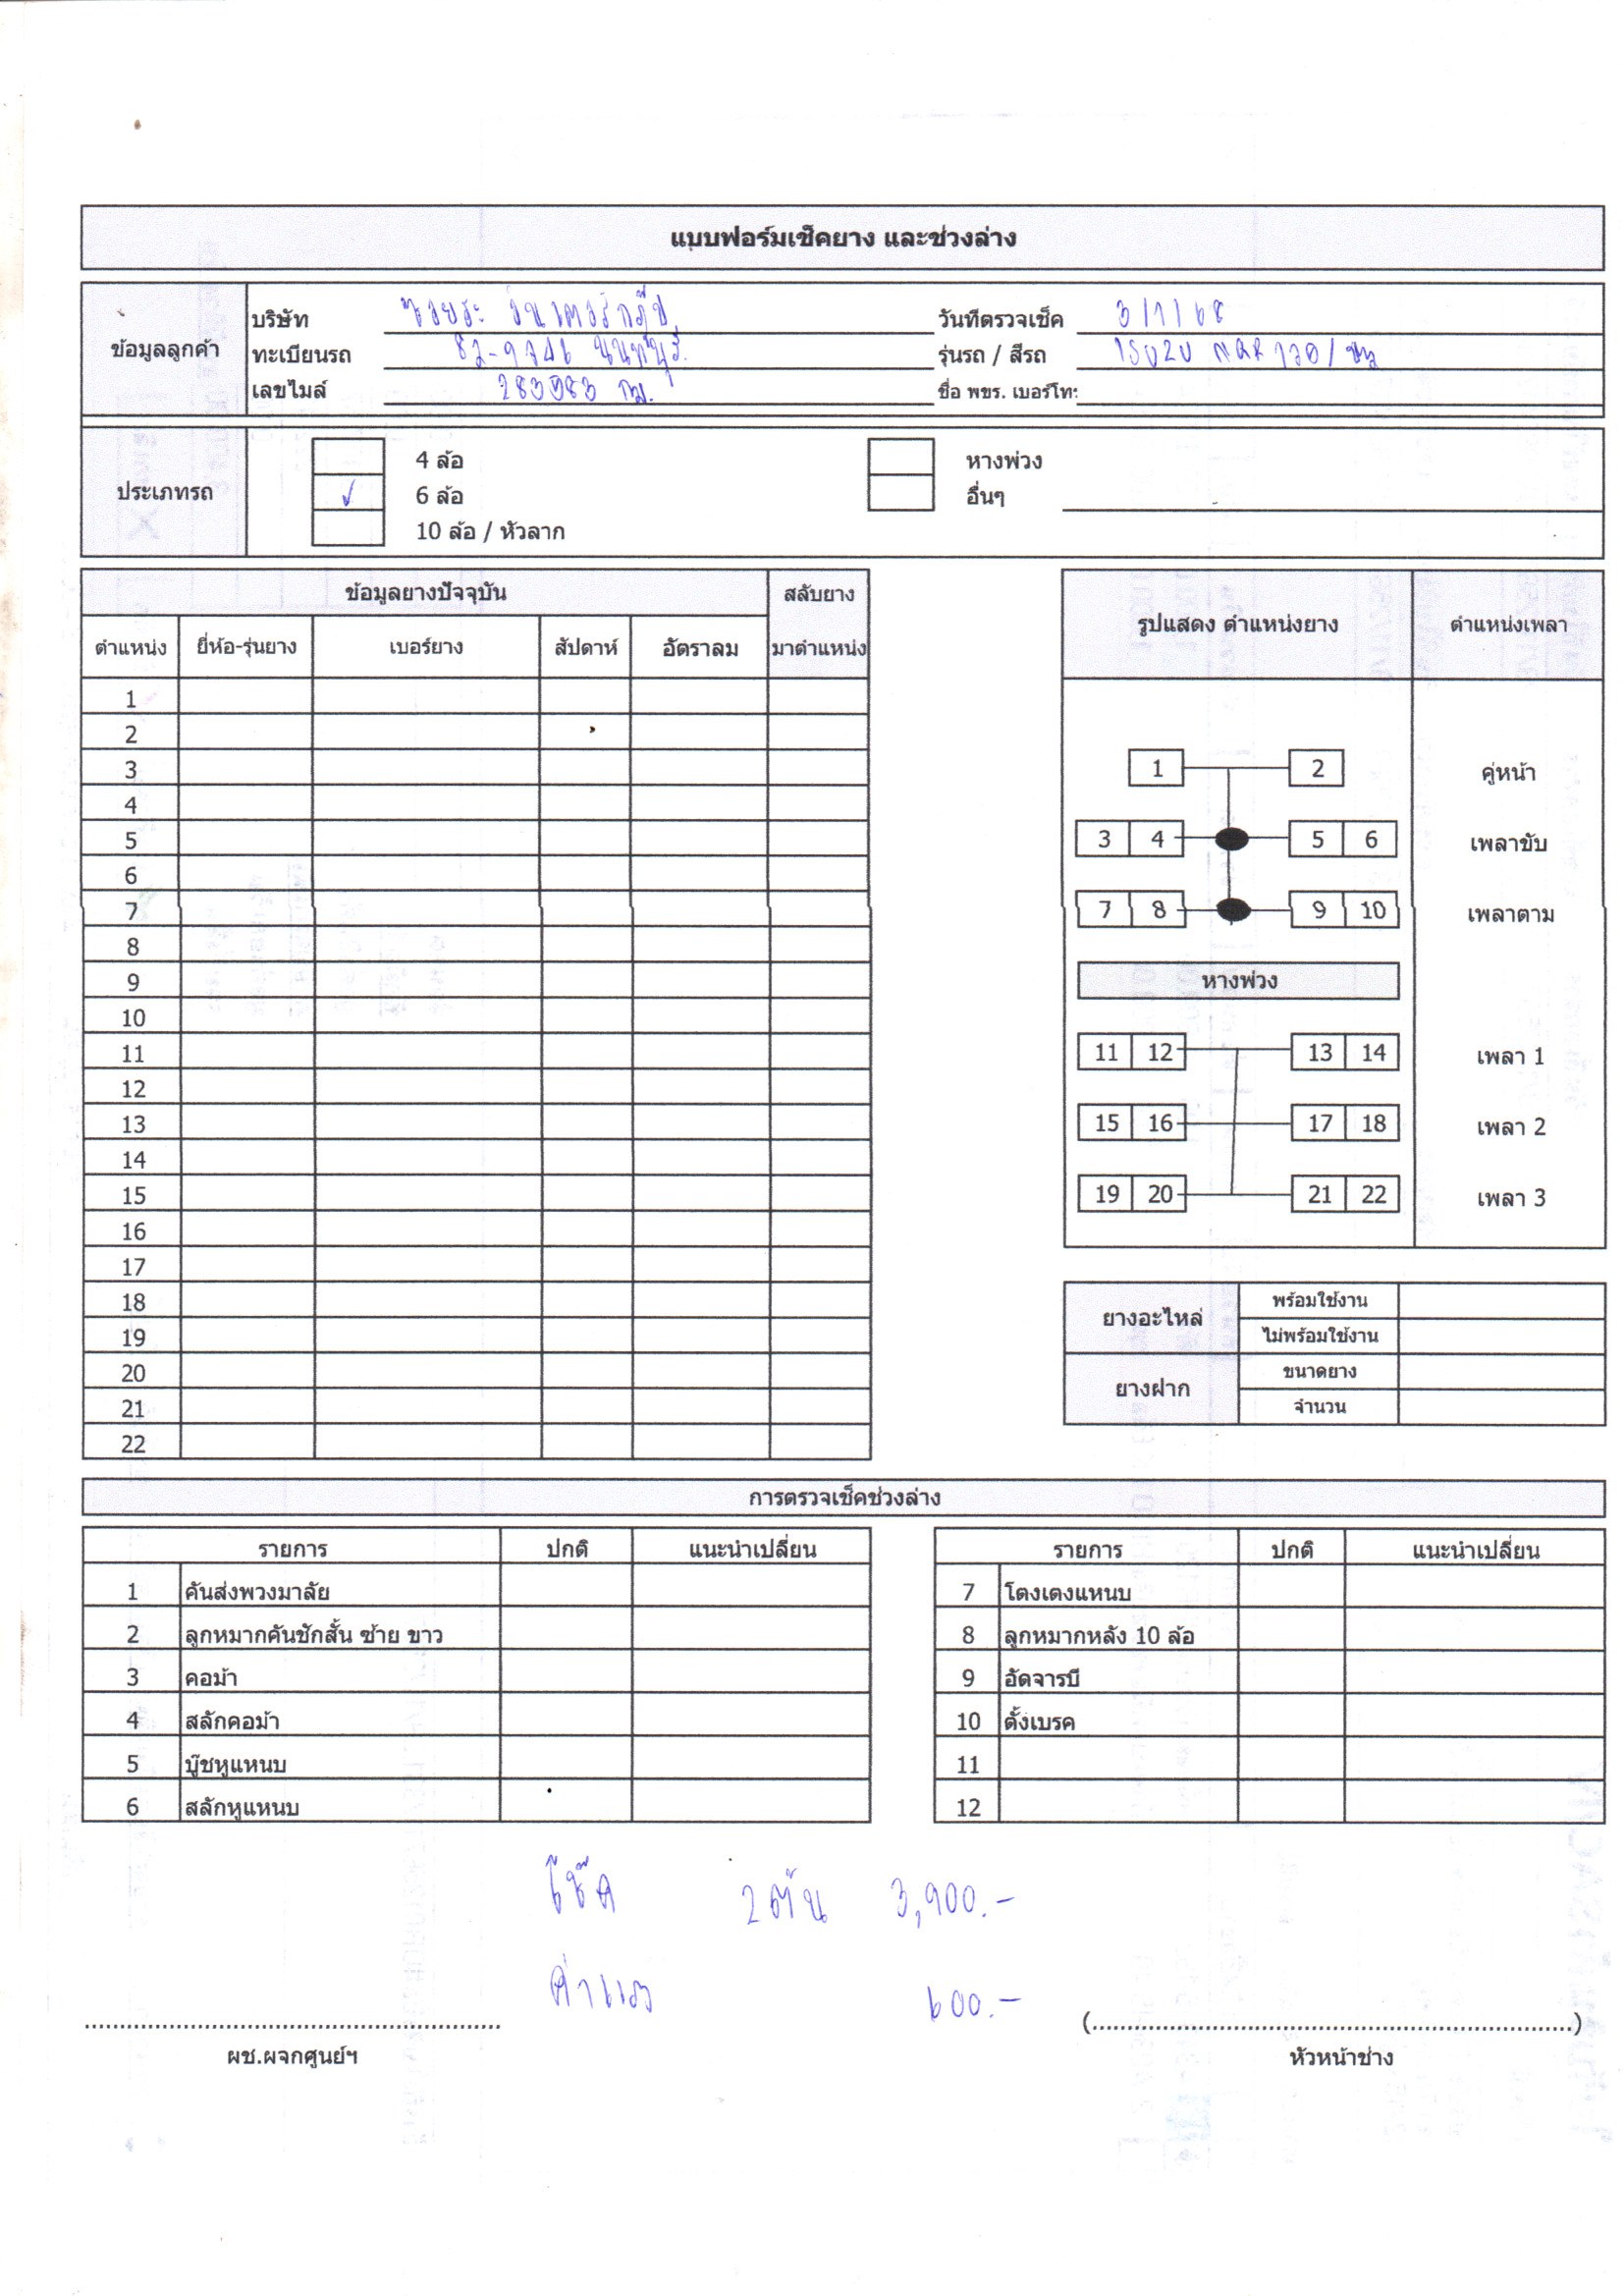 แบบฟอร์มเช็คยาง และช่วงล่าง
ข้อมูลลูกค้า
บริษัท
วันที่ตรวจเช็ค 3/1/68
ทะเบียนรถ นนทบุรี
รุ่นรถ / สีรถ ISUZU
เลขไมล์ กม.
ชื่อ พขร. เบอร์โทร
ประเภทรถ
4 ล้อ หางพ่วง
✓ 6 ล้อ อื่นๆ
10 ล้อ / หัวลาก
ข้อมูลยางปัจจุบัน สลับยาง
ตำแหน่ง ยี่ห้อ-รุ่นยาง เบอร์ยาง สัปดาห์ อัตราลม มาตำแหน่ง
1
2
3
4
5
6
7
8
9
10
11
12
13
14
15
16
17
18
19
20
21
22
รูปแสดง ตำแหน่งยาง ตำแหน่งเพลา
1 2 คู่หน้า
3 4 5 6 เพลาขับ
7 8 9 10 เพลาตาม
หางพ่วง
11 12 13 14 เพลา 1
15 16 17 18 เพลา 2
19 20 21 22 เพลา 3
ยางอะไหล่ พร้อมใช้งาน
ไม่พร้อมใช้งาน
ยางฝาก ขนาดยาง
จำนวน
การตรวจเช็คช่วงล่าง
รายการ ปกติ แนะนำเปลี่ยน
1 คันส่งพวงมาลัย
2 ลูกหมากคันชักสั้น ซ้าย ขาว
3 คอม้า
4 สลักคอม้า
5 บู๊ชหูแหนบ
6 สลักหูแหนบ
รายการ ปกติ แนะนำเปลี่ยน
7 โตงเตงแหนบ
8 ลูกหมากหลัง 10 ล้อ
9 อัดจารบี
10 ตั้งเบรค
11
12
โช๊ค 2ต้น 3,900.-
ค่าแรง 600.-
ผช.ผจกศูนย์ฯ
(..........................................................................)
หัวหน้าช่าง